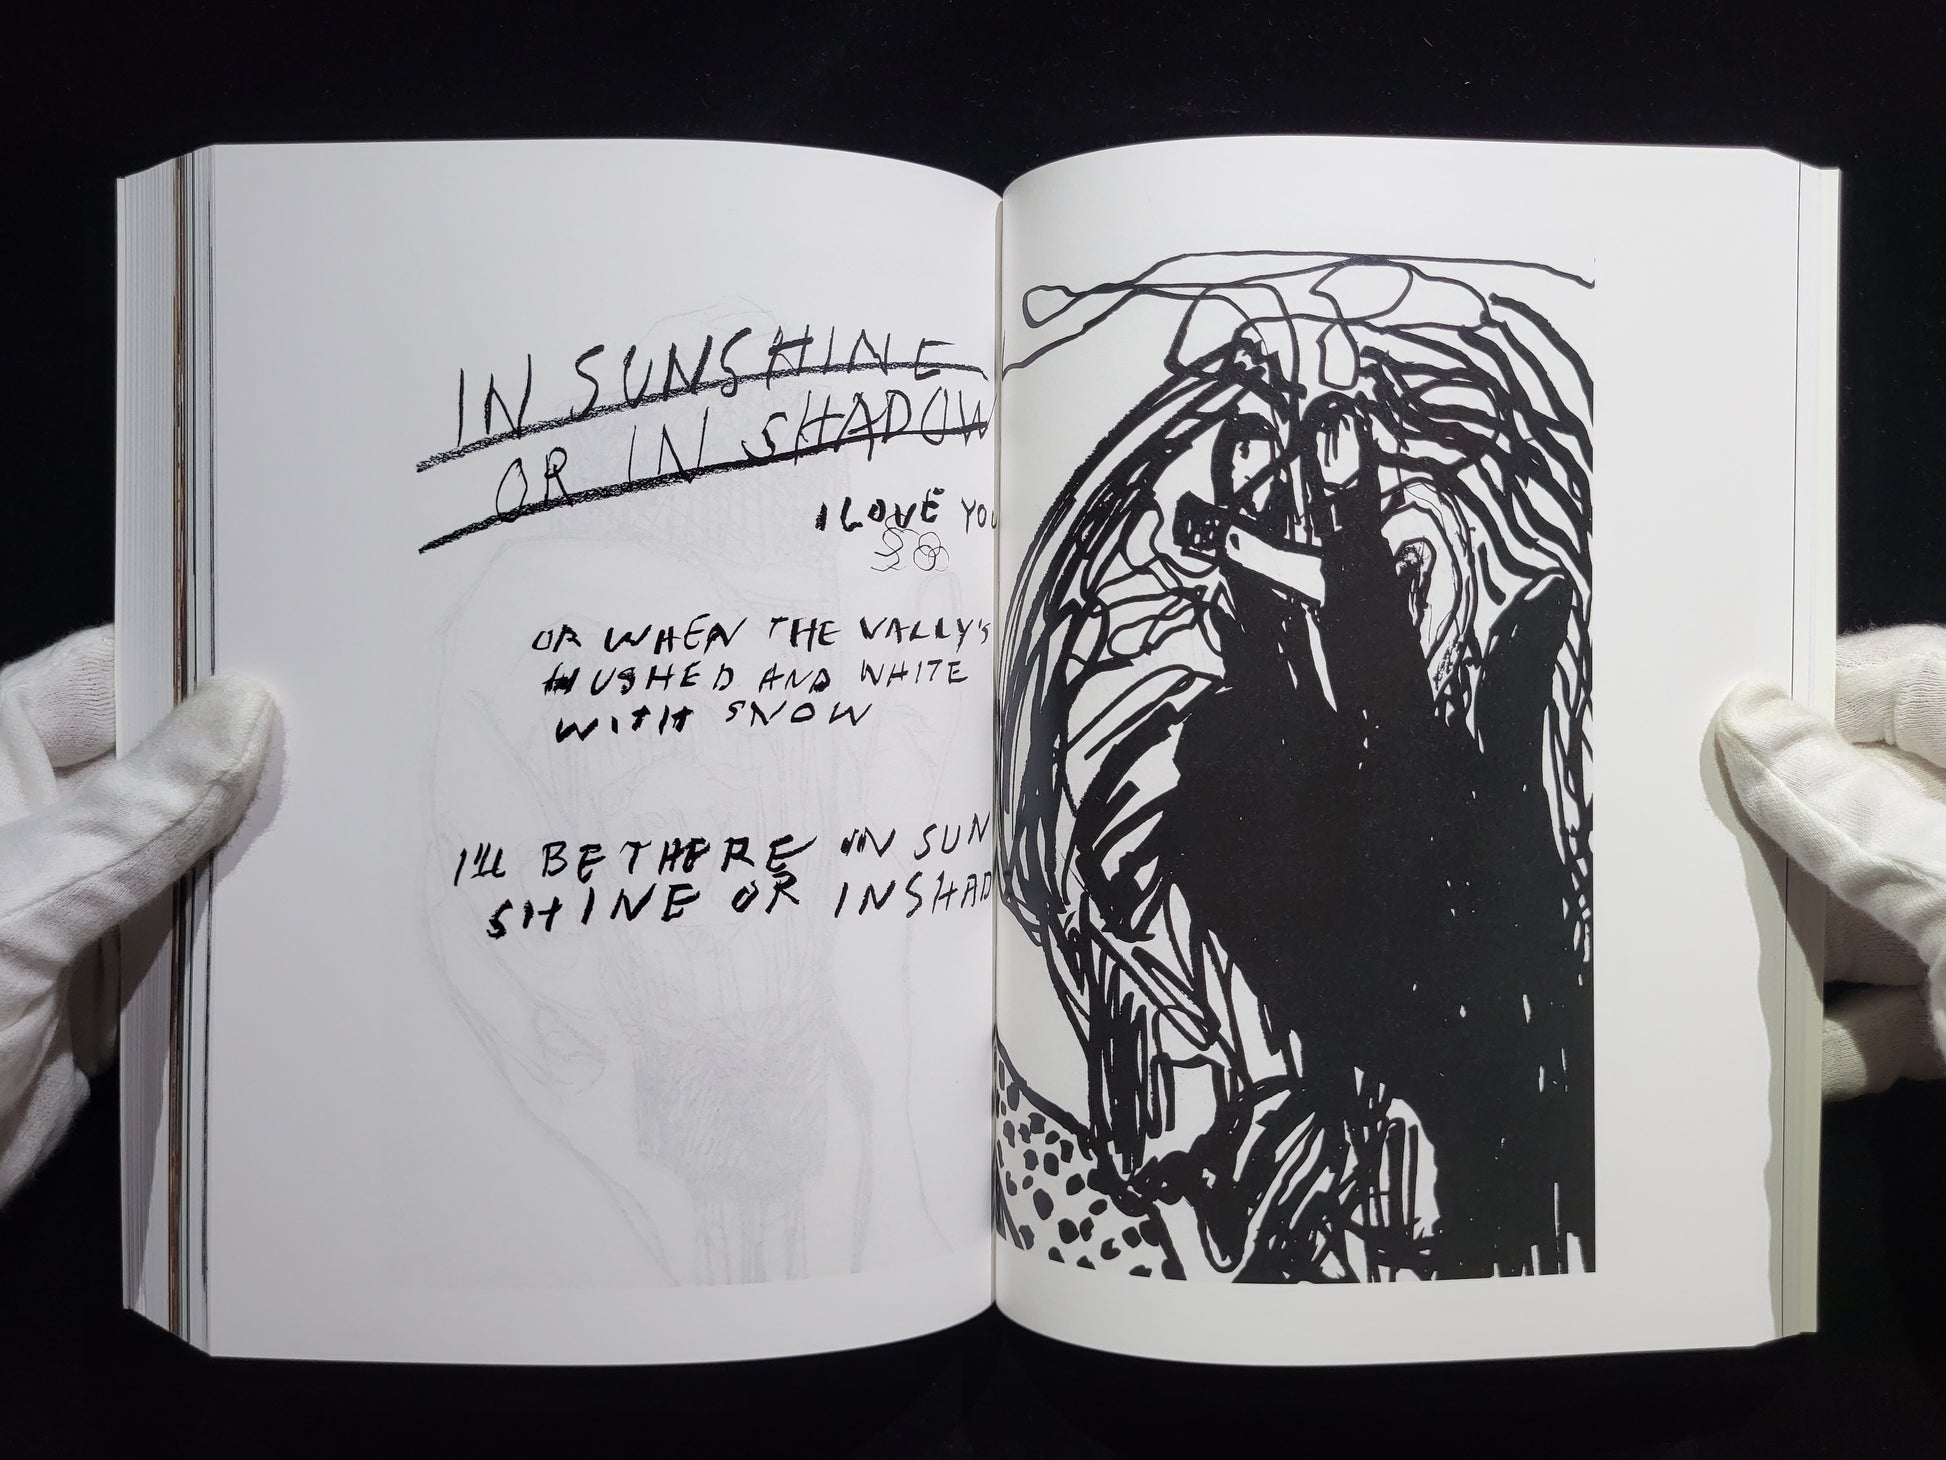 IN SUNSHINE
OR IN SHADOW
I LOVE YOU
SO
OR WHEN THE VALLY'S
HUSHED AND WHITE
WITH SNOW
I'LL BE THERE IN SUN
SHINE OR IN SHAD